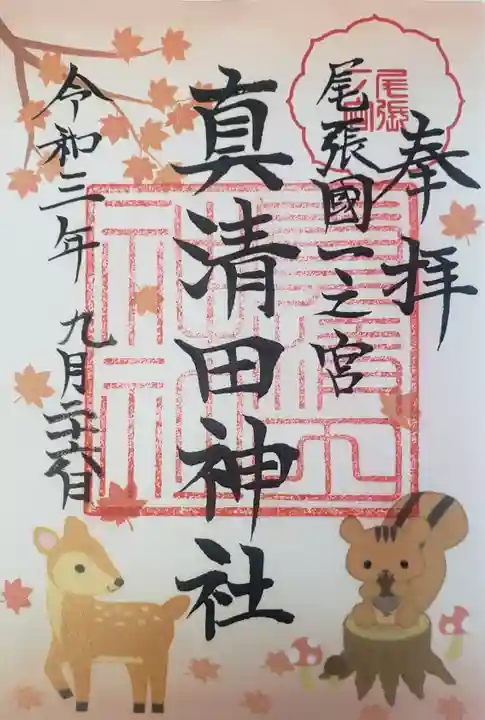 奉拝
尾張國一之宮
真清田神社
令和三年九月二十六日